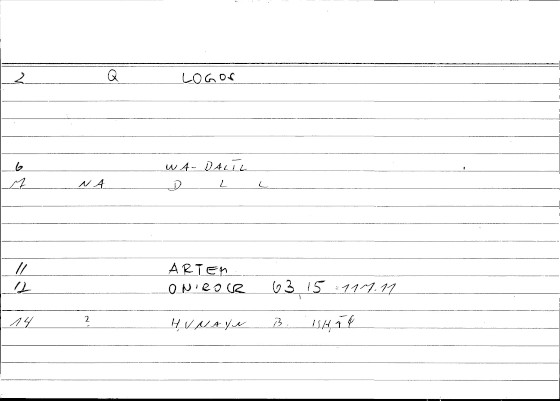 2 Q LOGOS
6 WA-DALĪL
M NA D L L
11 ARTEM
12 ONIROCR 63,15 = 111.11
14 ? HUNAYN B. ISHĀQ